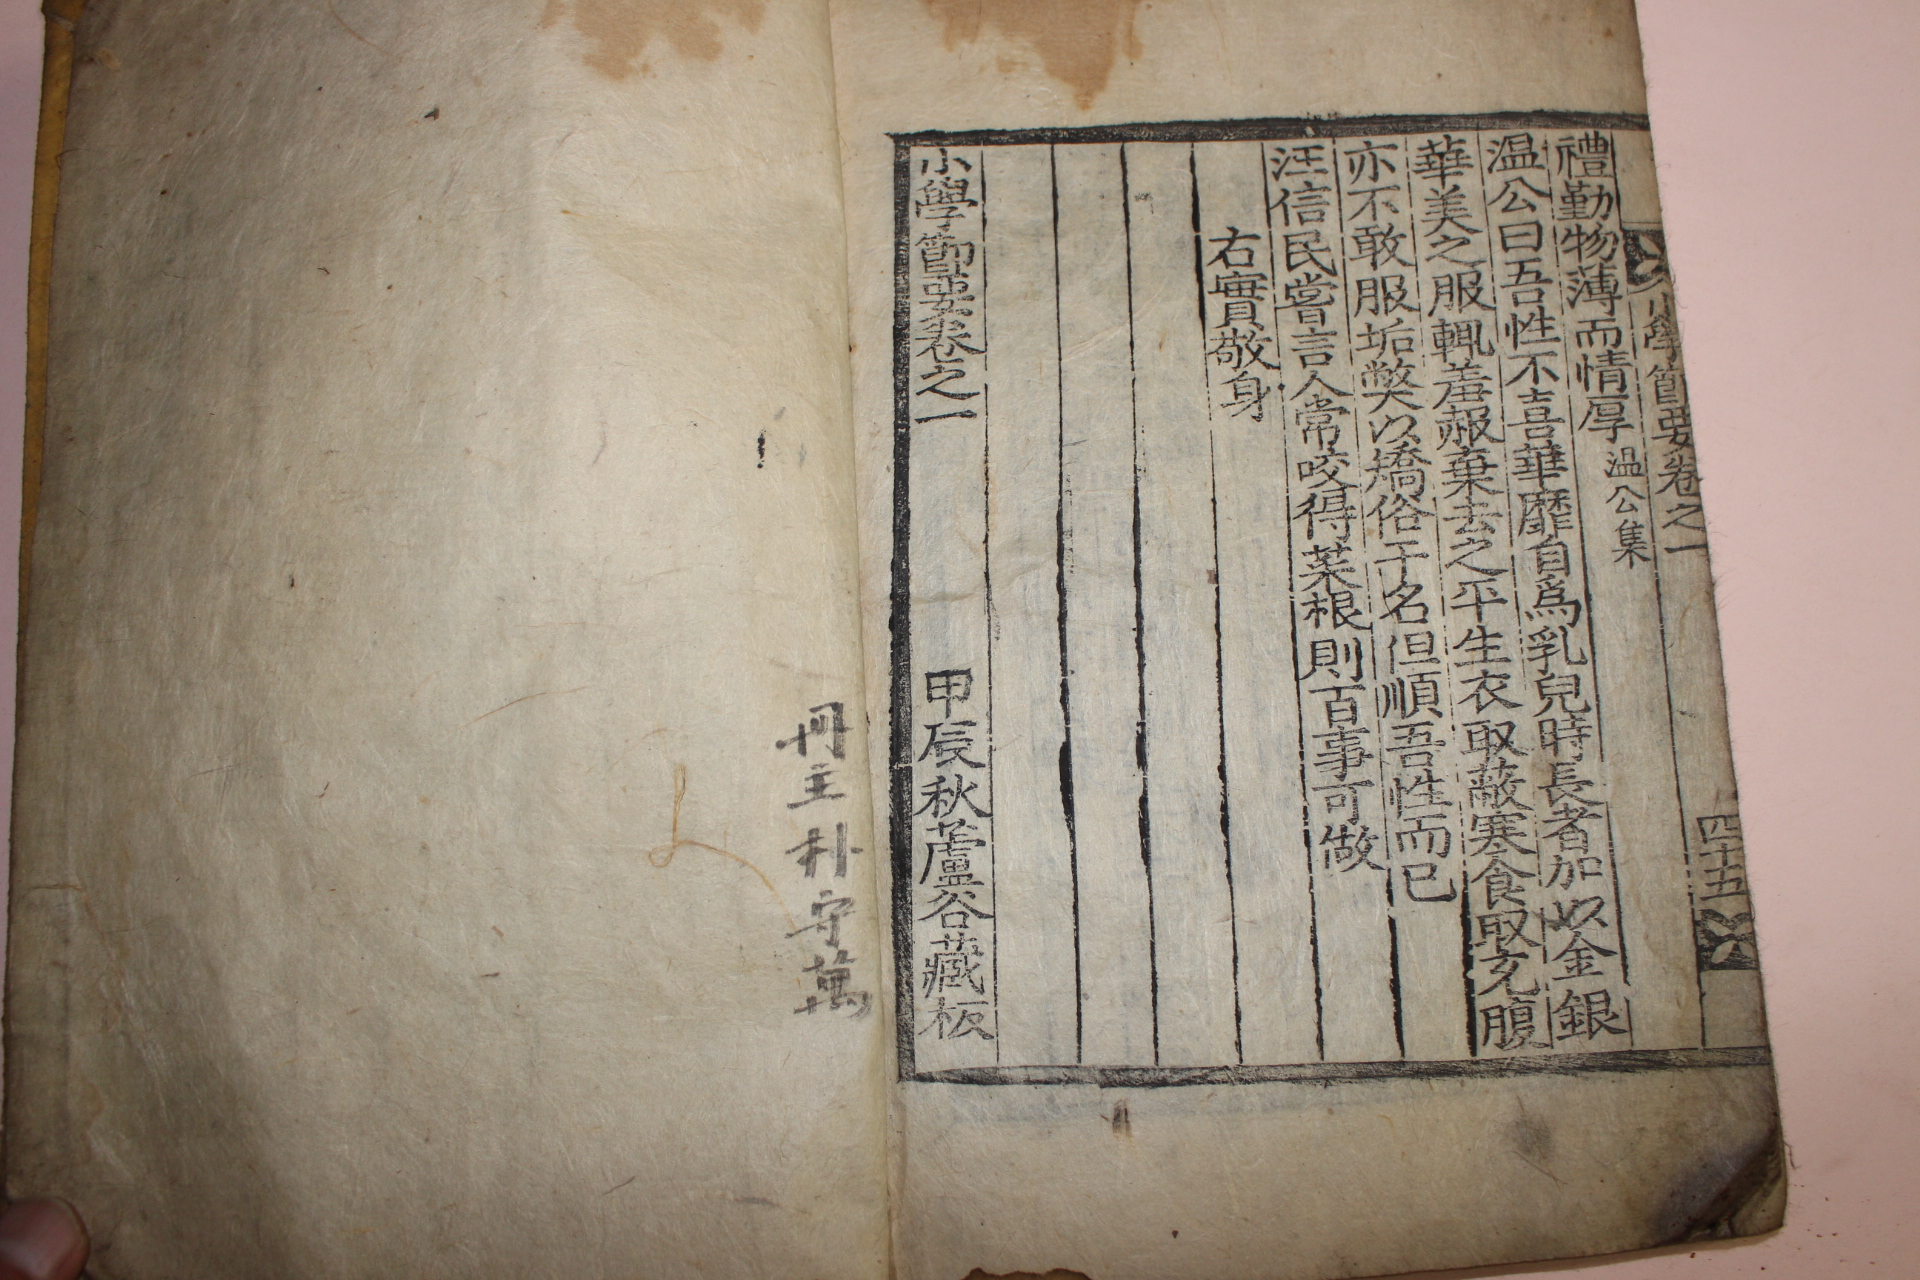 小學節要卷之一
四十五
禮勤物薄而情厚 温公集
温公曰吾性不喜華靡自爲乳兒時長者加以金銀
華美之服輒羞赧棄去之平生衣取蔽寒食取充腹
亦不敢服垢弊以矯俗干名但順吾性而已
汪信民嘗言人常咬得菜根則百事可做
右實敬身
小學節要卷之一
甲辰秋蘆谷藏板
冊主朴守萬